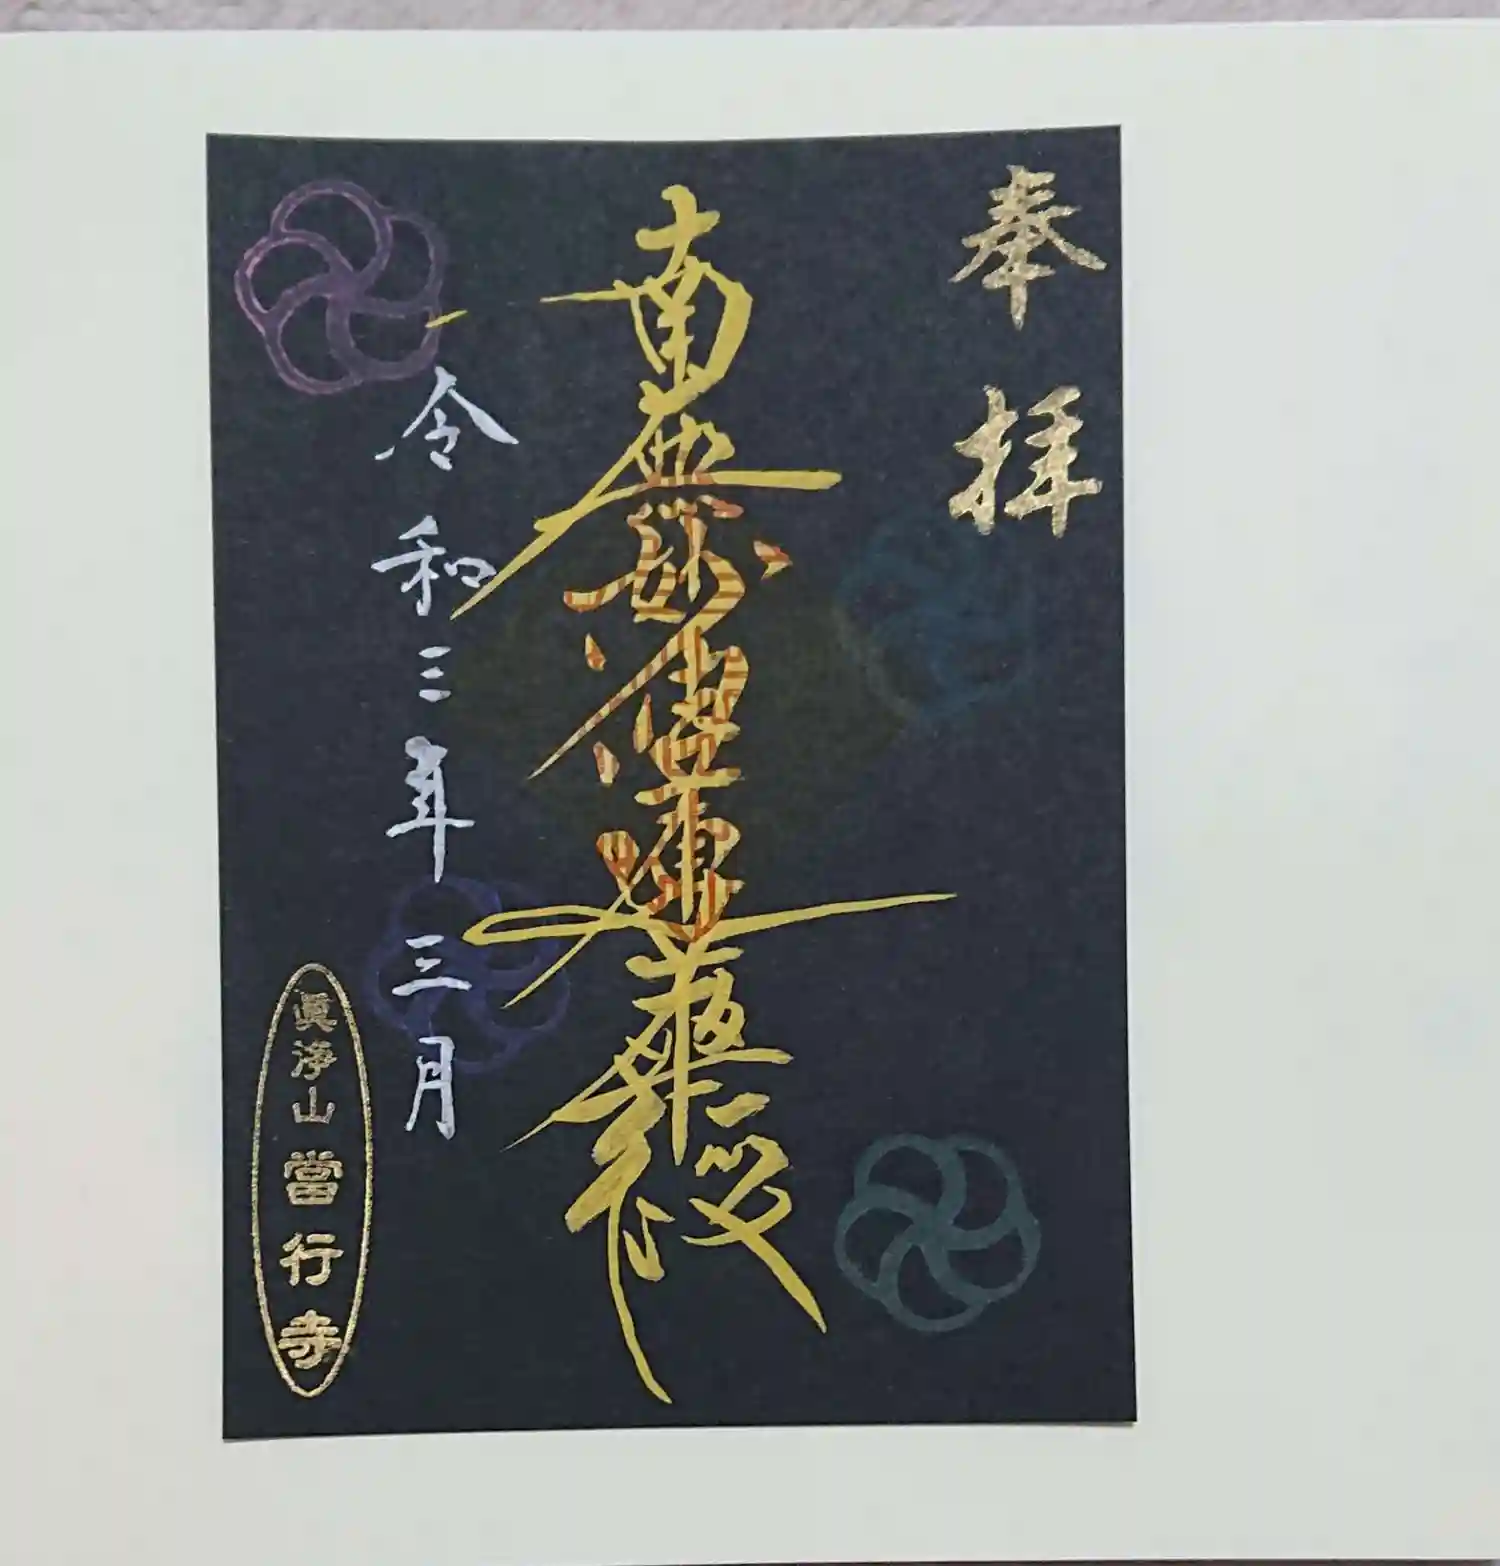 奉拝
南無妙法蓮華経
令和三年三月
眞浄山 當行寺